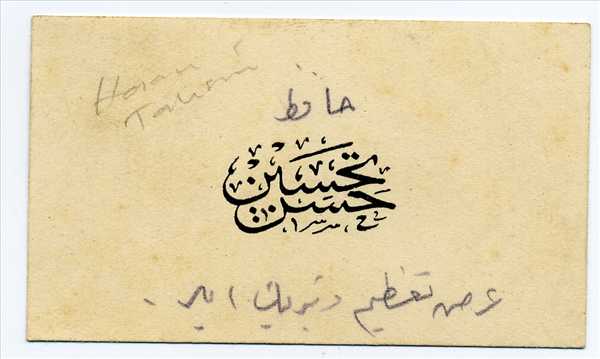 Hasan
Tahsin
حافظ
تحسين
حسن
عرض تعظيم و تبريك ايلر .